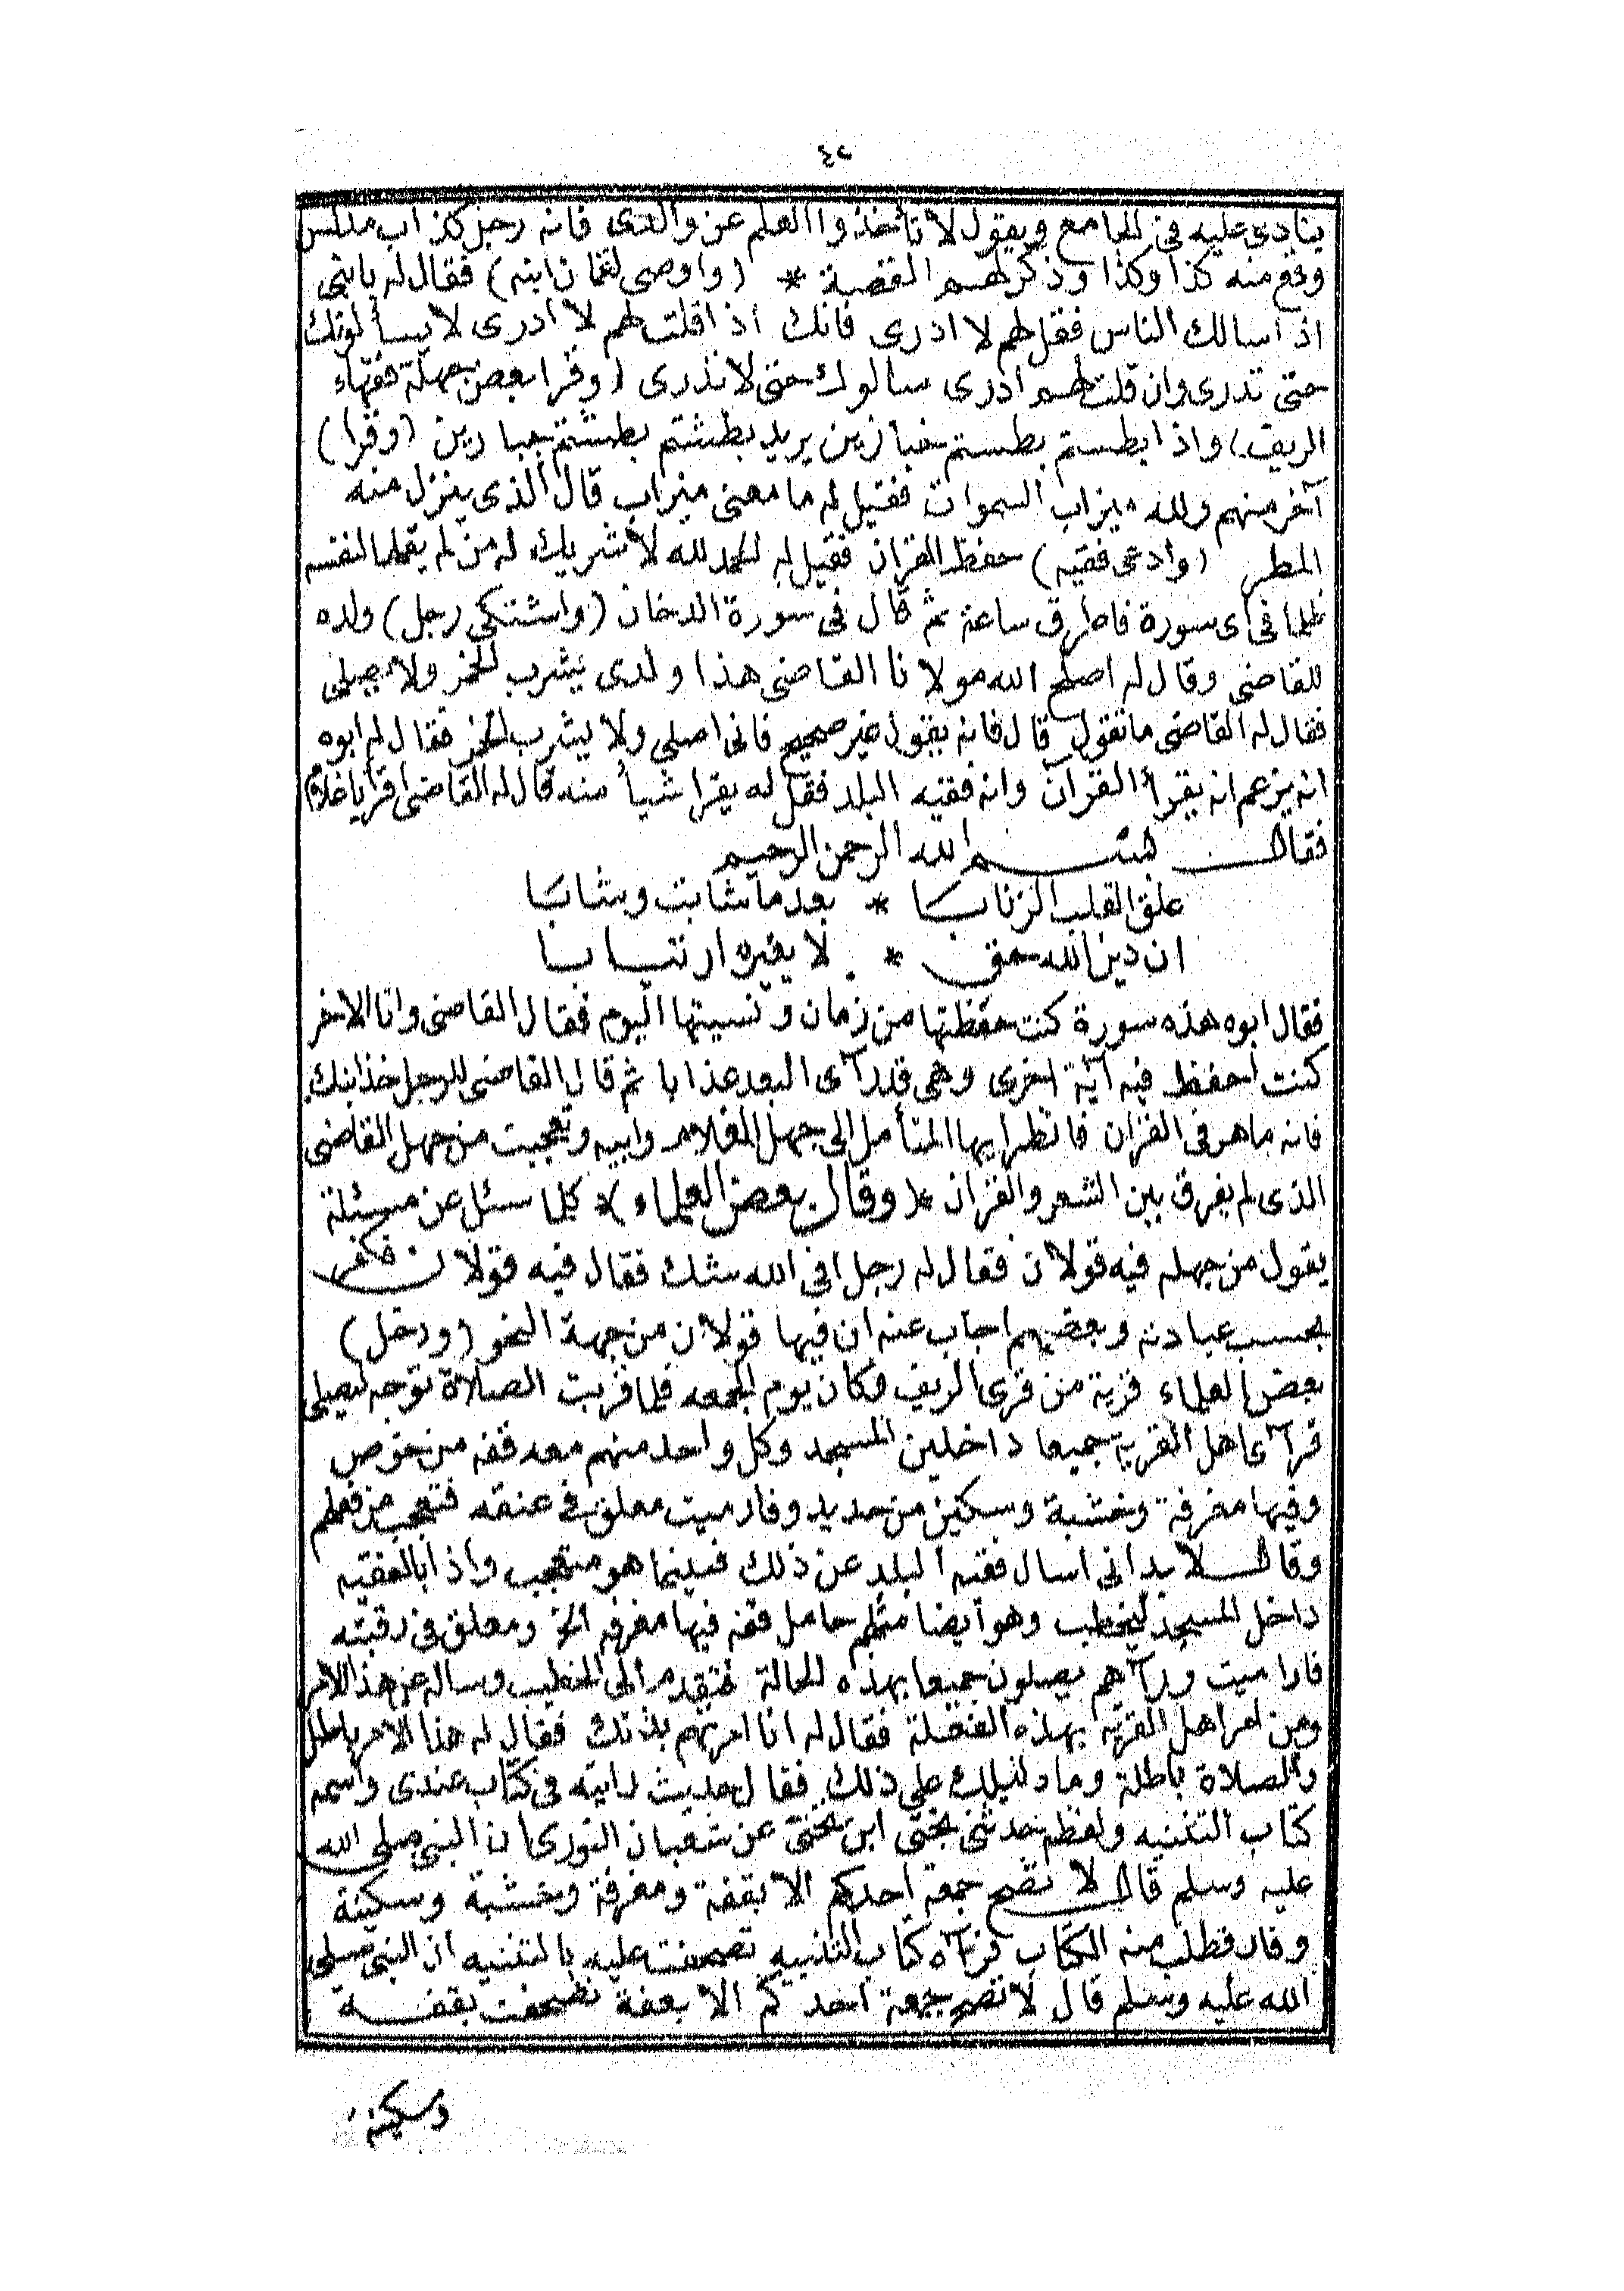 ٤٢
ينادى عليه فى الجامع ويقول لا تأخذوا العلم عن والدى فانه رجل كذاب مدلس
وقع منه كذا وكذا وذكر لهم القصة * (واوصى لقمان ابنه) فقال له يا بنى
اذا سالك الناس فقل لهم لا ادرى فانك اذا قلت لهم لا ادرى لا يسألونك
حتى تدرى وان قلت لهم ادرى سالوك حتى لا تدرى (وقرا بعض جهلة فقهاء
الريف) واذا بطستم بطستم خبازين يريد بطشتم بطشتم جبارين (وقرا)
آخر منهم ولله ميزاب السموات فقيل له ما معنى ميزاب قال الذى ينزل منه
المطر (وادعى فقيه) حفظ القران فقيل له الحمد لله لا شريك له من لم يقلها لنفسه
ظلما فى اى سورة فاطرق ساعة ثم قال فى سورة الدخان (واشتكى رجل) ولده
للقاضى وقال له اصلح الله مولانا القاضى هذا ولدى يشرب الخمر ولا يصلى
فقال له القاضى ما تقول قال فانه يقول غير صحيح فانى اصلى ولا يشرب الخمر فقال له ابوه
انه يزعم انه يقرأ القران وانه فقيه البلد فقل له يقرا شيأ منه قال له القاضى اقرأ يا غلام
فقال بسم الله الرحمن الرحيم
علق القلب الربابا * بعد ما شابت وشابا
ان دين الله حق * لا يغيره ارتيابا
فقال ابوه هذه سورة كنت حفظتها من زمان ونسيتها اليوم فقال القاضى وانا الاخر
كنت احفظ فيه آية اخرى وهى قد رآى البعد عذابا ثم قال القاضى للرجل خذ ابنك
فانه ماهر فى القران فانظر ايها المتأمل الى جهل الغلام وابيه وتعجبت من جهل القاضى
الذى لم يفرق بين الشعر والقران * (وقال بعض العلماء) * كلما سئل عن مسئلة
يقول من جهله فيه قولان فقال له رجل افى الله شك فقال فيه قولان فكفر
بحسب عبادته وبعضهم اجاب عنه ان فيها قولان من جهة النحو (ودخل)
بعض العلماء قرية من قرى الريف وكان يوم الجمعه فلما قربت الصلاة توجه ليصلى
فرآى اهل القرية جميعا داخلين المسجد وكل واحد منهم معه قفه من خوص
وفيها مغرفة وخشبة وسكين من حديد وفار ميت معلق فى عنقه فتعجب من فعلهم
وقال لا بد انى اسال فقيه البلد عن ذلك فبينما هو متعجب واذا بالفقيه
داخل المسجد ليخطب وهو ايضا مثلهم حامل قفه فيها مغرفه الخ ومعلق فى رقبته
فارا ميت ورآهم يصلون جميعا بهذه الحالة فتقدم الى الخطيب وساله عن هذا الامر
ومن امر اهل القرية بهذه الفعلة فقال له انا امرتهم بذلك فقال له هذا الامر باطل
والصلاة باطلة وما دليلك على ذلك فقال حديث رايته فى كتاب عندى واسمه
كتاب التنبيه ولفظه حدثنى يحى ابن يحى عن شعبان الثورى ان النبى صلى الله
عليه وسلم قال لا تصح جمعة احدكم الا بقفة ومغرفة وخشبة وسكينة
وفار فطلب منه الكتاب فرآه كتاب التنبيه تصحفت عليه بالتنبيه ان النبى صلى
الله عليه وسلم قال لا تصح جمعة احدكم الا بعفة تصحفت بقفة
وسكينة